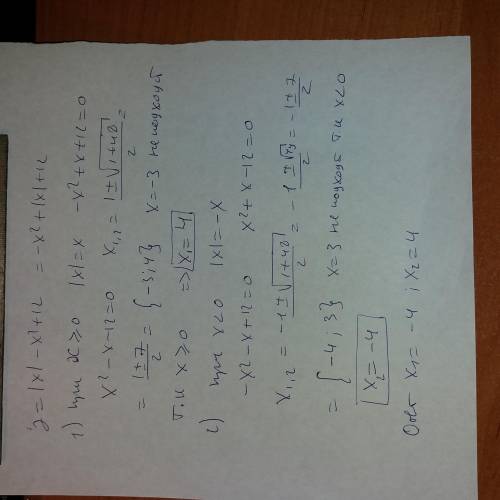 y = |x| - x² + 12 = -x² + |x| + 12
1) при x ≥ 0 |x| = x -x² + x + 12 = 0
x² - x - 12 = 0 x₁,₂ = (1 ± √(1+48))/2 =
= (1 ± 7)/2 = {-3; 4} x = -3 не подходит
т.и x ≥ 0 => x₁ = 4
2) при x < 0 |x| = -x
-x² - x + 12 = 0 x² + x - 12 = 0
x₁,₂ = (-1 ± √(1+48))/2 = (-1 ± √49)/2 = (-1 ± 7)/2
= {-4; 3} x = 3 не подходит т.и x < 0
x₂ = -4
Ответ x₁ = -4 ; x₂ = 4